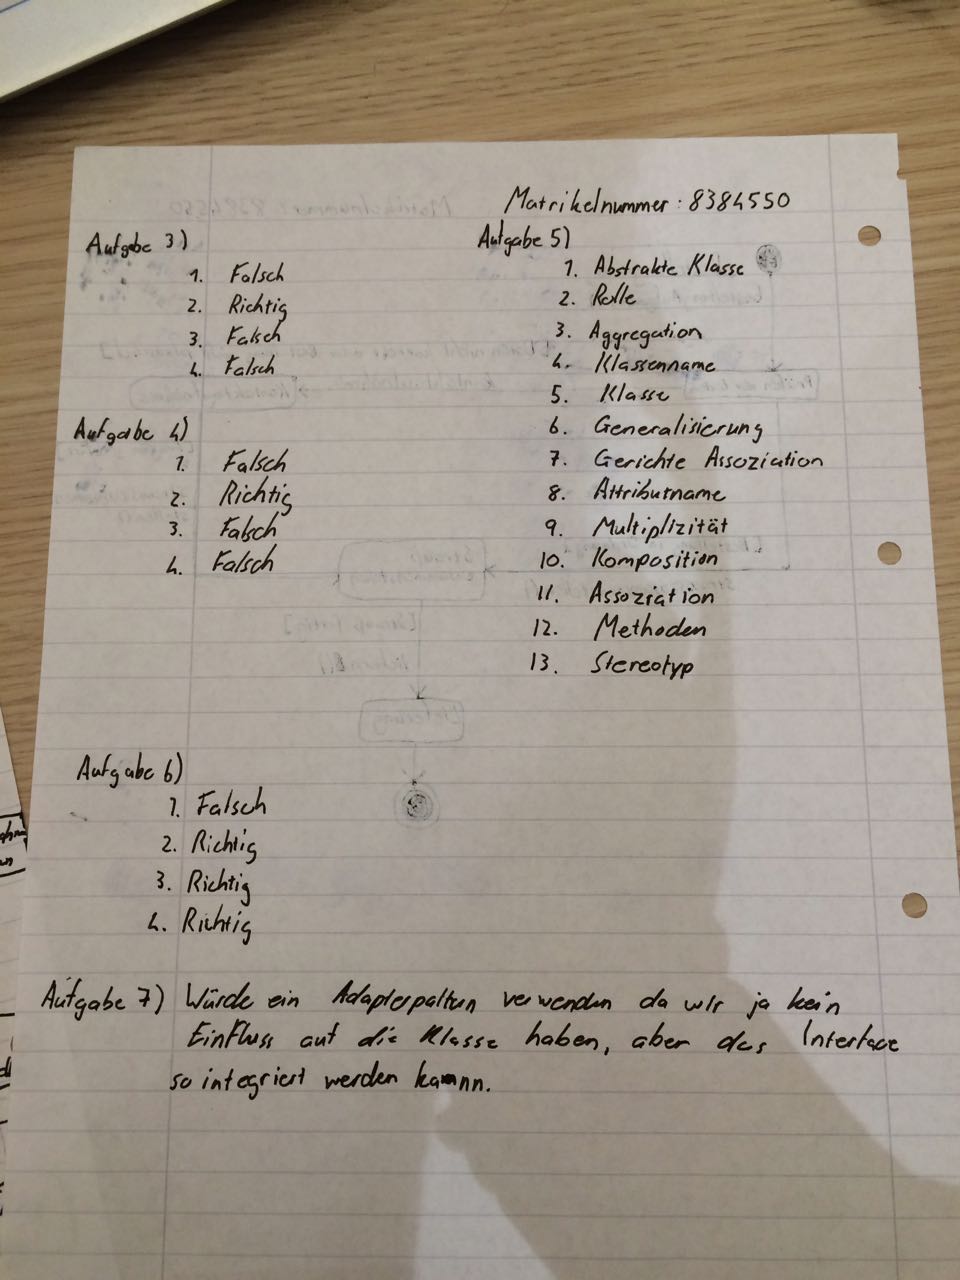 Matrikelnummer: 8384550
Aufgabe 3)
1. Falsch
2. Richtig
3. Falsch
4. Falsch
Aufgabe 4)
1. Falsch
2. Richtig
3. Falsch
4. Falsch
Aufgabe 5)
1. Abstrakte Klasse
2. Rolle
3. Aggregation
4. Klassenname
5. Klasse
6. Generalisierung
7. Gerichte Assoziation
8. Attributname
9. Multiplizität
10. Komposition
11. Assoziation
12. Methoden
13. Stereotyp
Aufgabe 6)
1. Falsch
2. Richtig
3. Richtig
4. Richtig
Aufgabe 7) Würde ein Adapterpattern verwenden da wir ja kein
Einfluss auf die Klasse haben, aber das Interface
so integriert werden kannn.